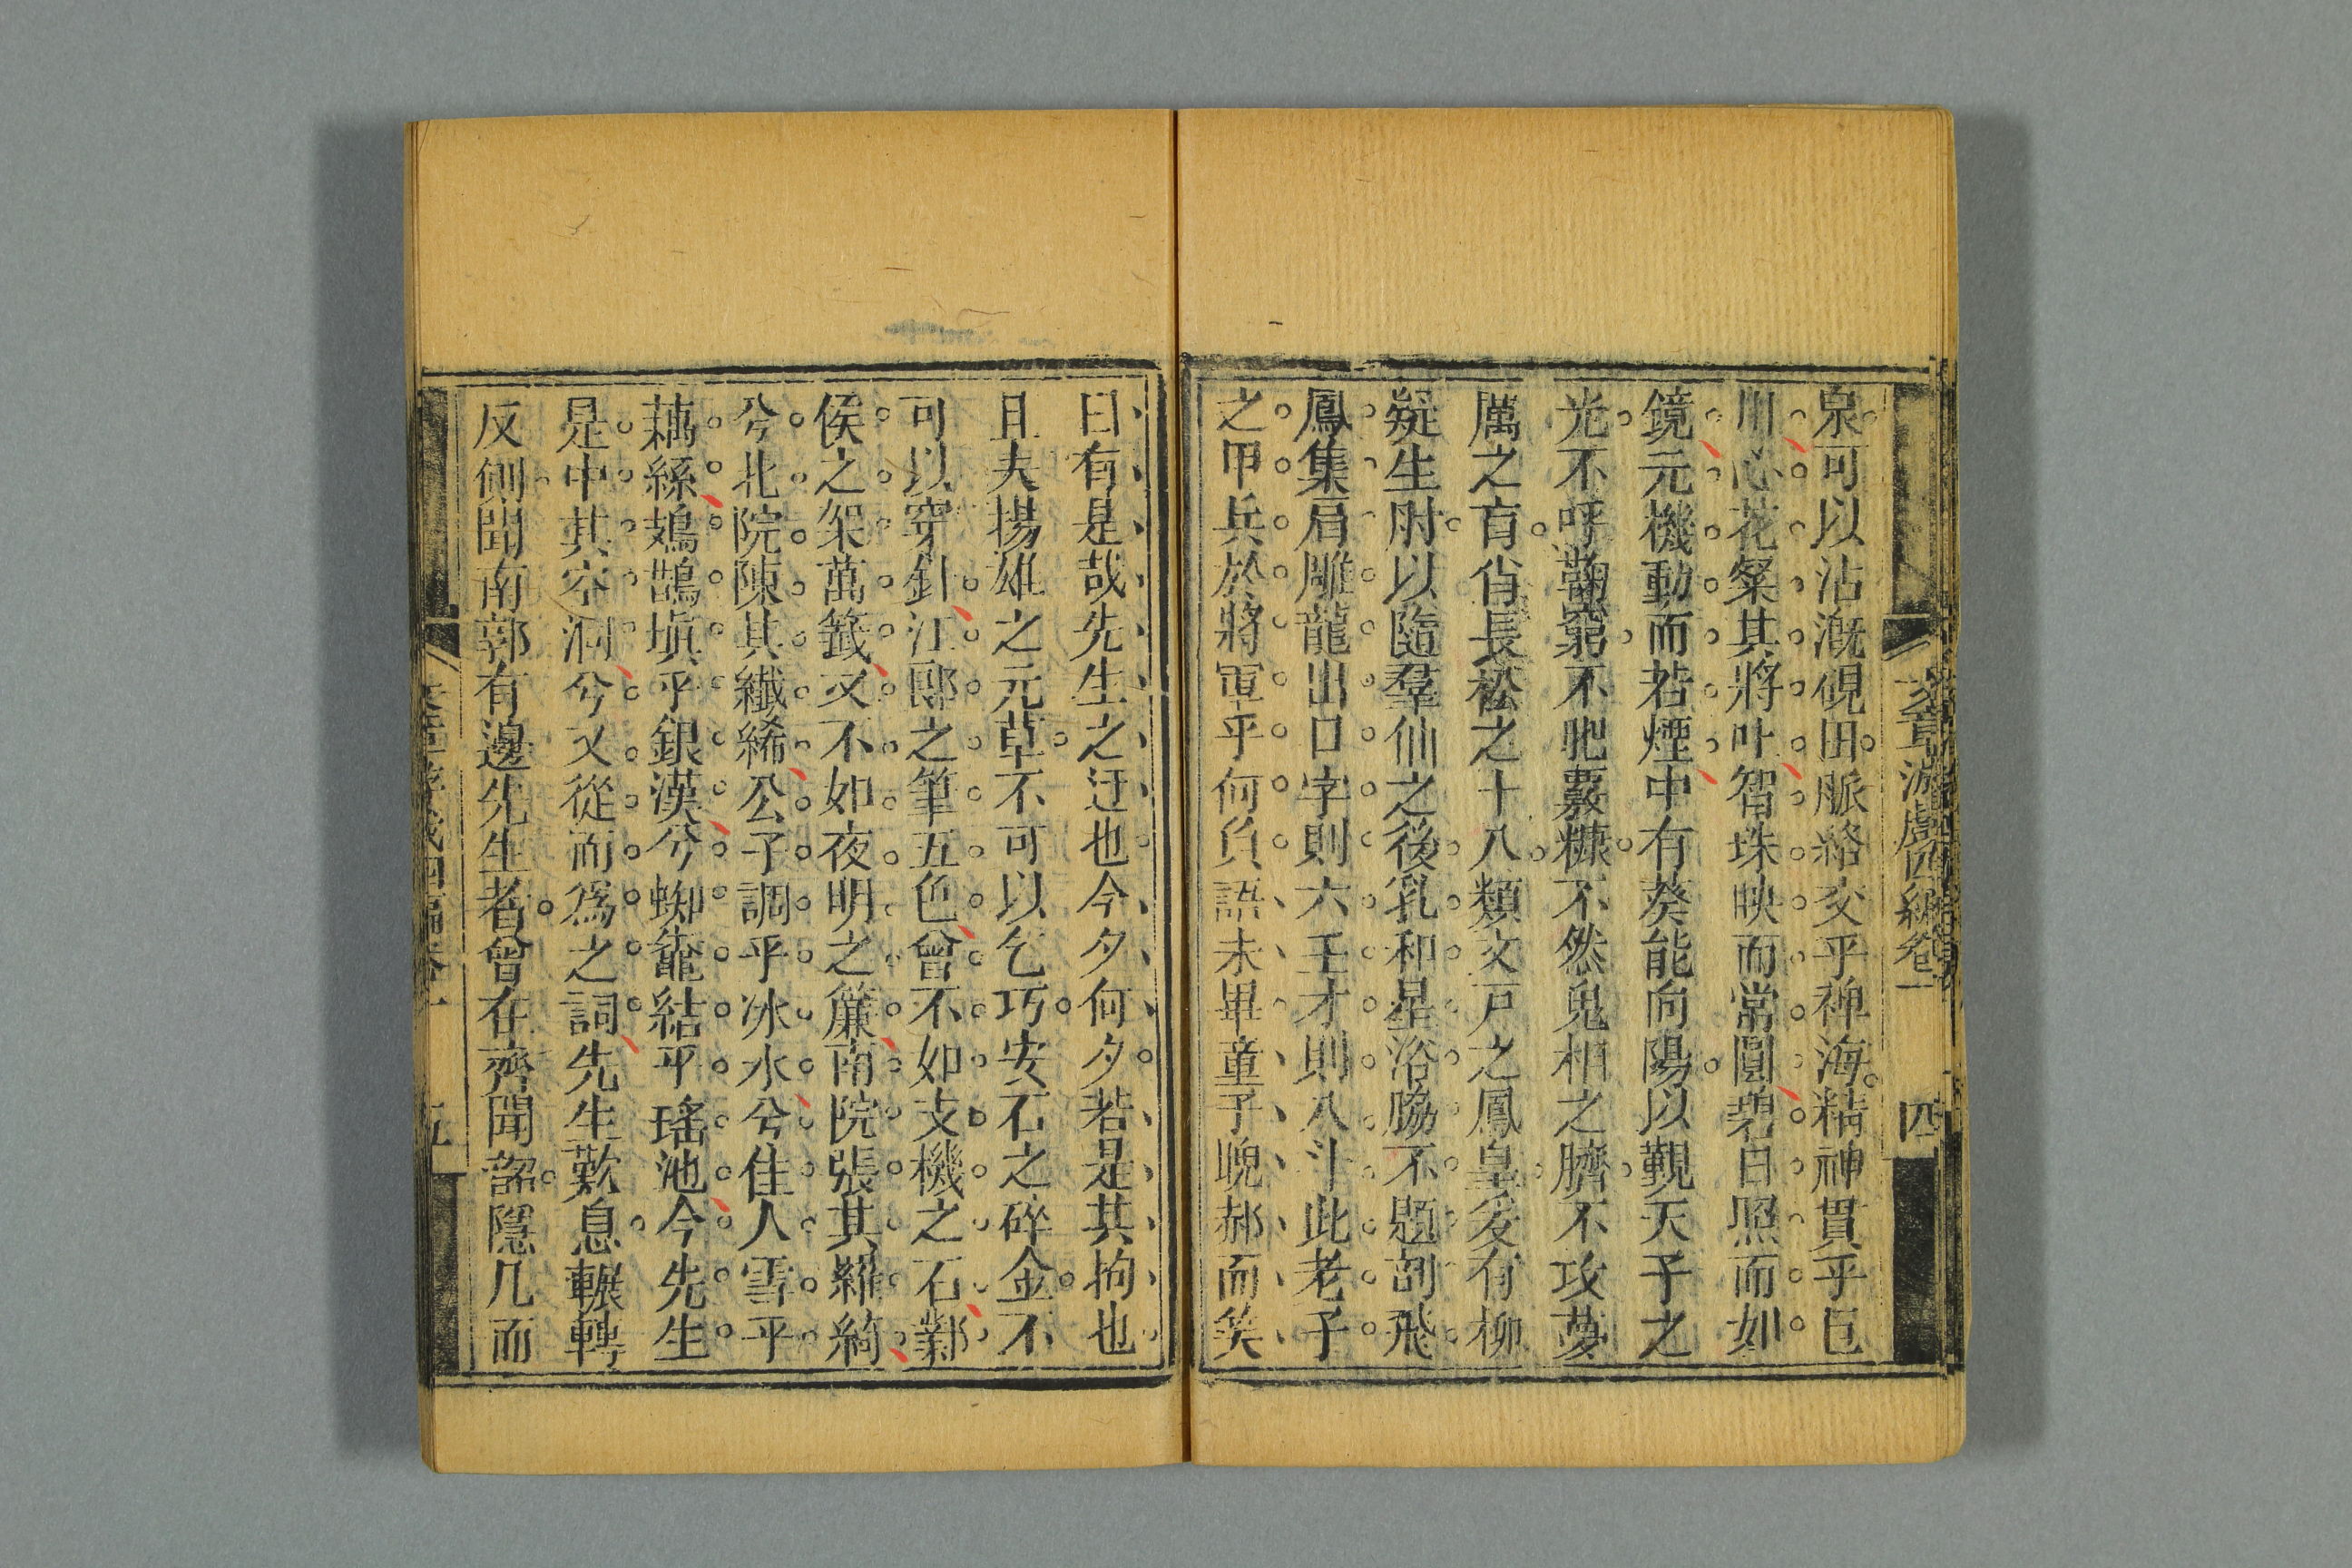 文章游戲四編卷一 四
泉可以沾溉硯田脈絡交乎裨海精神貫乎巨
川心花粲其將叶智珠映而常圓碧日照而如
鏡元機動而若煙中有葵能向陽以覲天子之
光不呼鞠窮不肥覈糠不然鬼相之臍不攻夢
厲之肓肖長松之十八類文戸之鳳皇爰有柳
疑生肘以隨羣仙之後乳和星浴脇不題剖飛
鳳集肩雕龍出口字則六壬才則八斗此老子
之甲兵於將軍乎何負語未畢童子睨郝而笑
曰有是哉先生之迂也今夕何夕若是其拘也
且夫揚雄之元草不可以乞巧安石之碎金不
可以穿針江郎之筆五色曾不如支機之石鄴
侯之架萬籤又不如夜明之簾南院張其羅綺
兮北院陳其纖絺公子調乎冰水兮佳人雪乎
藕絲鴆鵲塡乎銀漢兮蜘鼅結乎瑤池今先生
是中其空洞兮又從而爲之詞先生歎息輾轉
反側聞南郭有邊先生者曾在齊聞韶隱几而
五